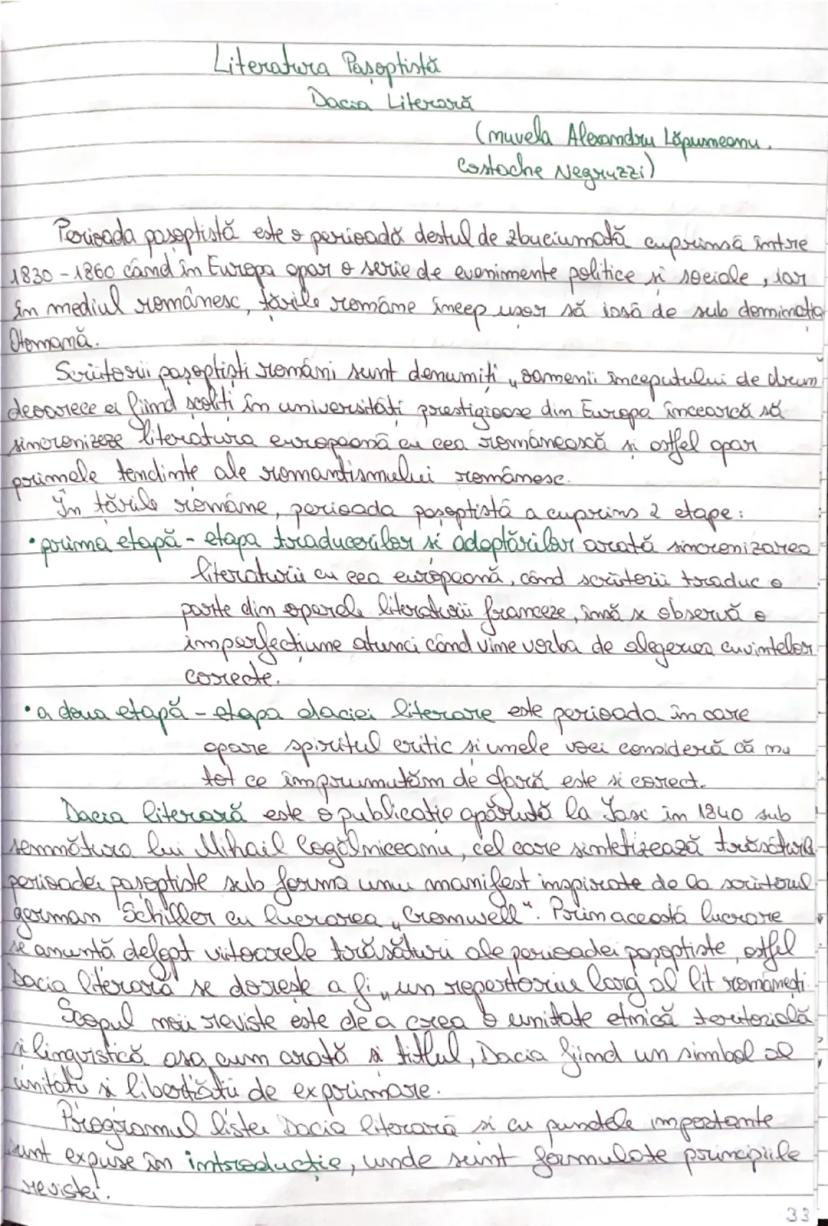 Literatura Pașoptistă
Dacia Literară
(nuvela Alexandru Lăpușneanu.
Costache Negruzzi)
Perioada pașoptistă este o perioadă destul de zbuciumată cuprinsă între
1830 - 1860 când în Europa apar o serie de evenimente politice și sociale, iar
în mediul românesc, țările române încep ușor să iasă de sub dominația
Otomană.
Scriitorii pașoptiști români sunt denumiți „oamenii începutului de drum"
deoarece ei fiind școliți în universități prestigioase din Europa încearcă să
sincronizeze literatura europeană cu cea românească și astfel apar
primele tendințe ale romantismului românesc.
În țările române, perioada pașoptistă a cuprins 2 etape:
• prima etapă - etapa traducerilor și adaptărilor arată sincronizarea
literaturii cu cea europeană, când scriitorii traduc o
parte din operele literaturii franceze, însă se observă o
imperfecțiune atunci când vine vorba de alegerea cuvintelor
corecte.
• a doua etapă - etapa daciei literare este perioada în care
apare spiritul critic și unele voci consideră că nu
tot ce împrumutăm de afară este și corect.
Dacia literară este o publicație apărută la Iași în 1840 sub
semnătura lui Mihail Cogălniceanu, cel care sintetizează trăsăturile
perioadei pașoptiste sub forma unui manifest inspirate de la scriitorul
german Schiller cu lucrarea „Cromwell". Prin această lucrare
se anunță defapt viitoarele trăsături ale perioadei pașoptiste, astfel
Dacia literară se dorește a fi „un repertoriu larg al lit românești.
Scopul noii reviste este de a crea o unitate etnică teritorială
și lingvistică așa cum arată și titlul, Dacia fiind un simbol al
unității și libertății de exprimare.
Programul listei Dacia literară și cu punctele importante
sunt expuse în introducție, unde sunt formulate principiile
revistei.
33